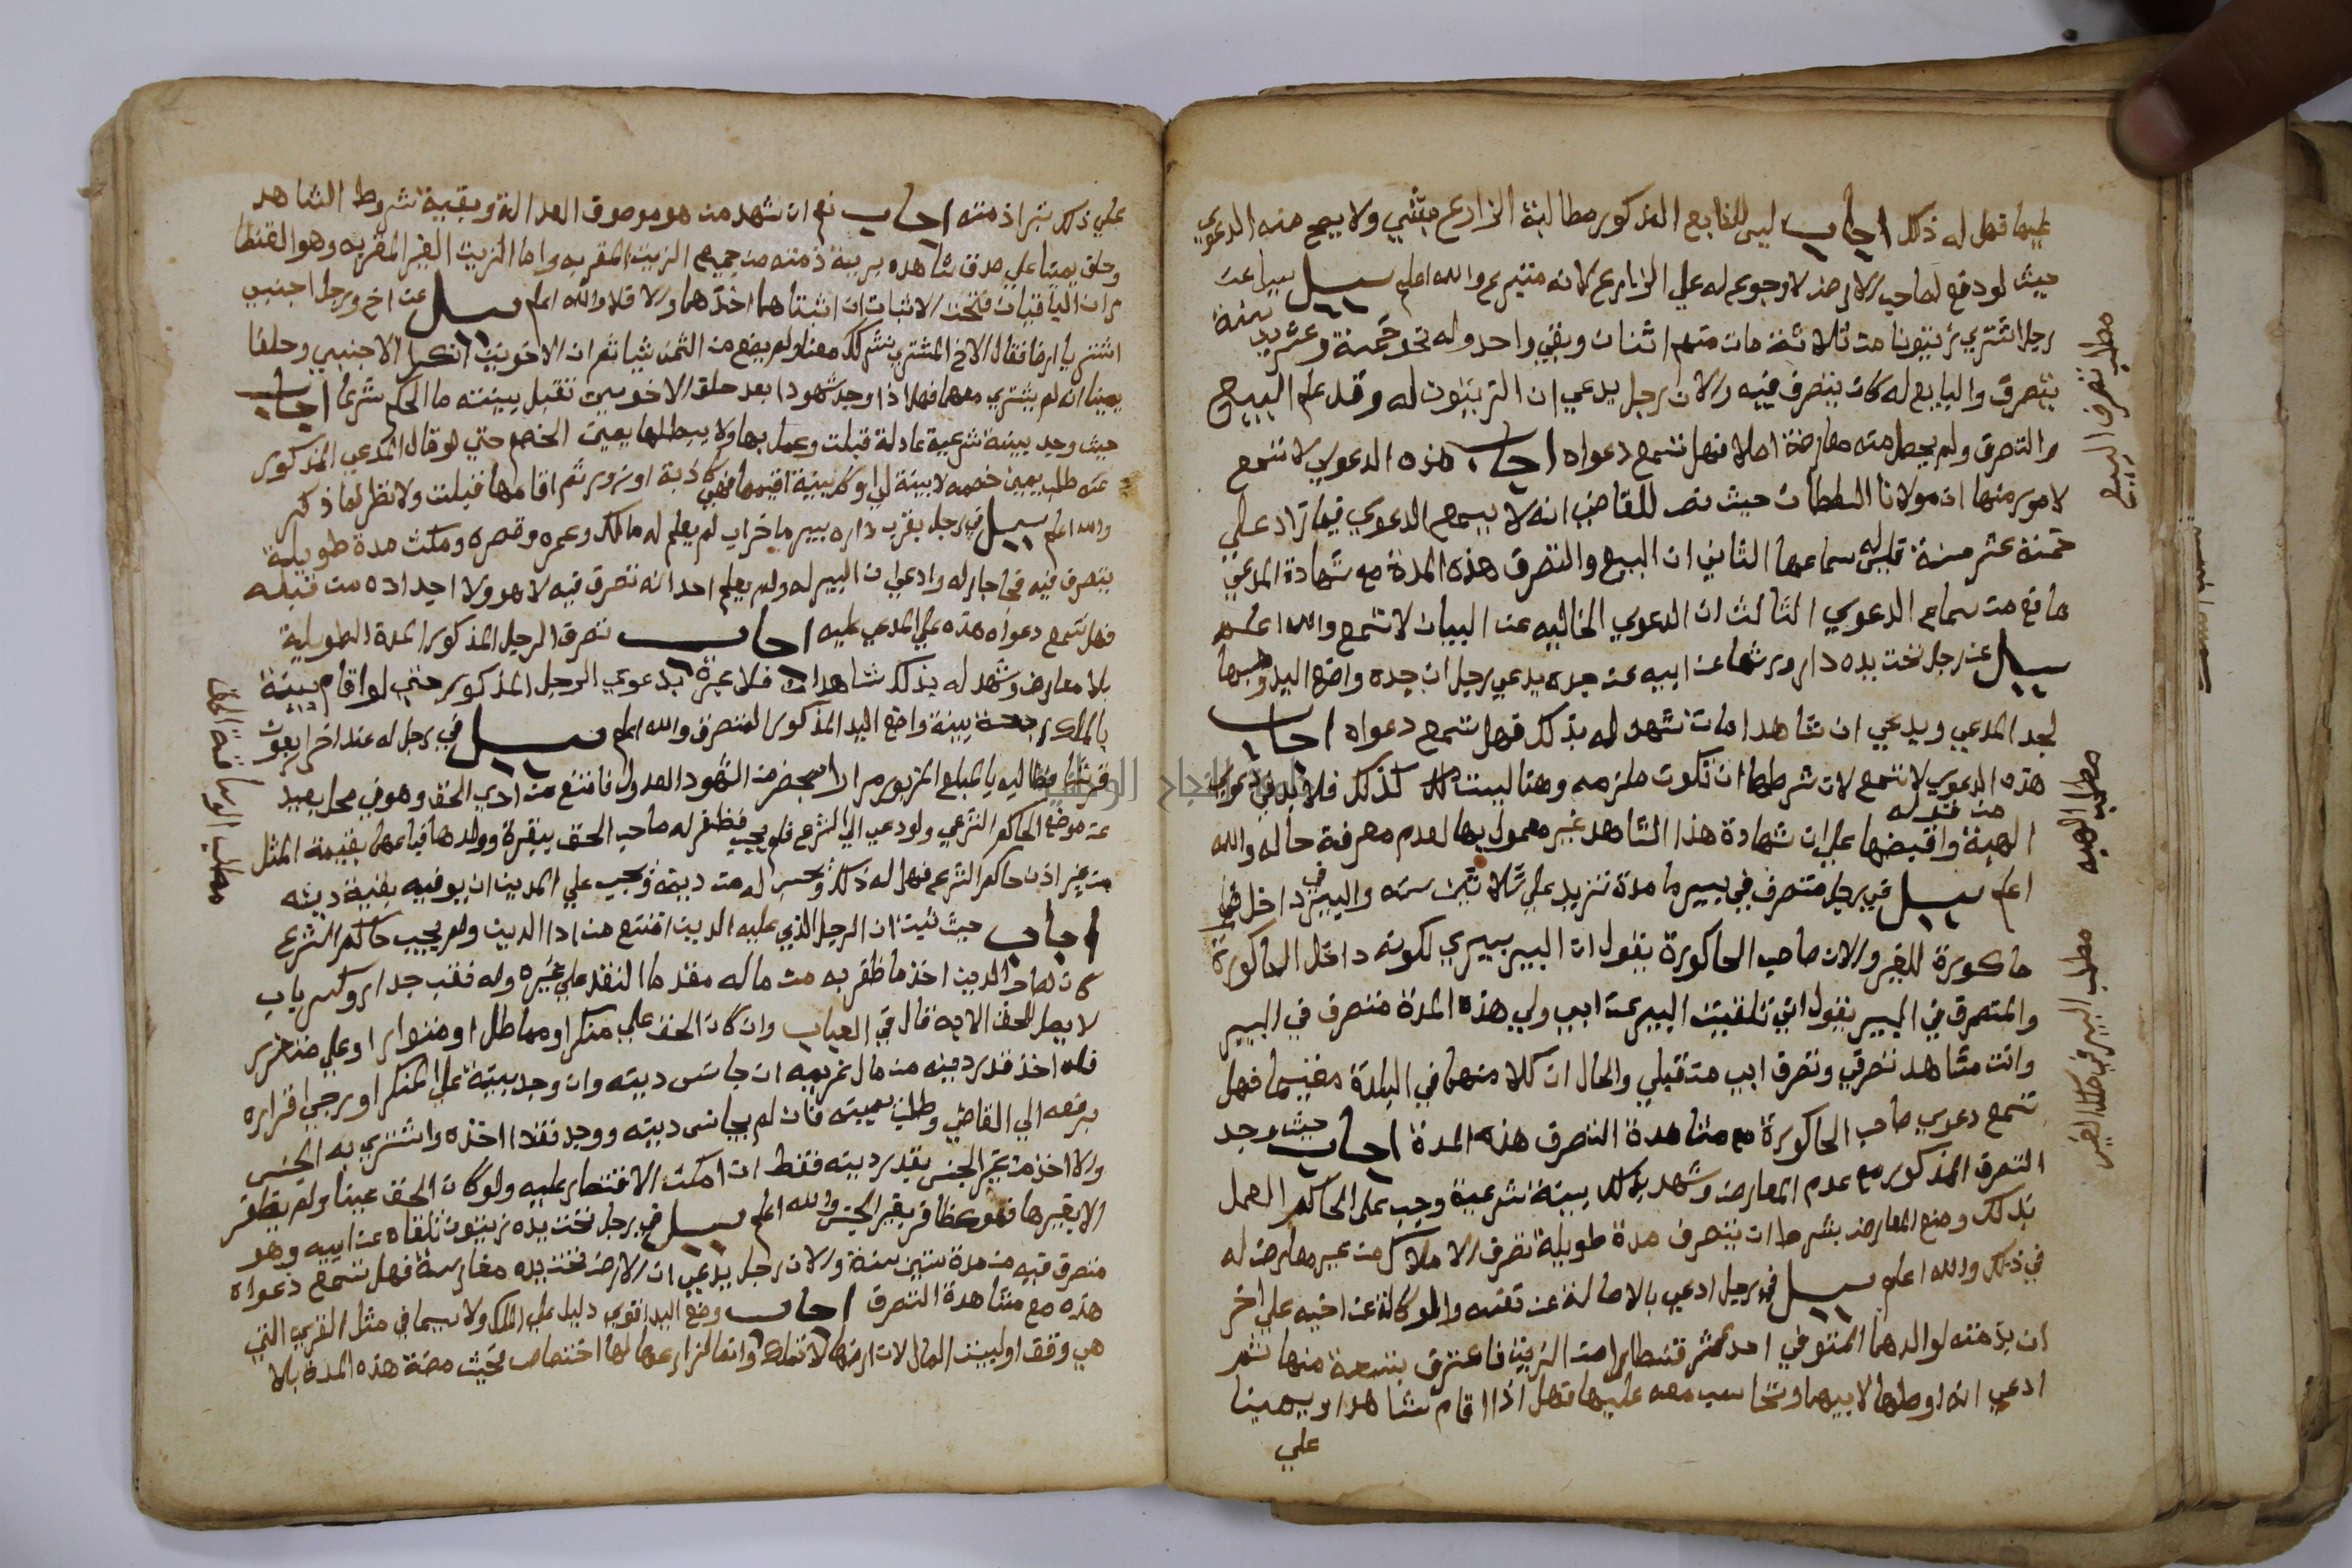 عليها فهل له ذلك اجاب ليس للفابع المذكور مطالبة الزارع بشي ولا يسمع منه الدعوي
حيث لو دفع لصاحب الارض لا رجوع له علي الزارع لانه متبرع والله اعلم سيل عن
رجل اشتري زيتونا من ثلاثة مات منهم اثنان وبقي واحد وله نحو خمسة وعشرين سنة
يتصرف والبايع له كان يتصرف فيه والان رجل يدعي ان الزيتون له وقد علم البيع
والتصرف ولم يحصل منه معارضة اصلا فهل تسمع دعواه اجاب هذه الدعوي لا تسمع
لامور منها ان مولانا السلطان حيث نص للقاضي انه لا يسمع الدعوي فيما زاد علي
خمسة عشر سنة فليس له سماعها الثاني ان البيع والتصرف هذه المدة مع شهادة المدعي
مانع من سماع الدعوي الثالث ان الدعوي الخاليه عن البيان لا تسمع والله اعلم
سيل عن رجل تحت يده دار ورثها عن ابيه عن جده يدعي رجل ان جده واضع اليد وهبها
لجد المدعي ويدعي ان شاهدا مات شهد له بذلك فهل تسمع دعواه اجاب
هذه الدعوي لا تسمع لان شرطها ان تكون ملزمه وهنا ليست كذلك فلا بد في دعوي
الهبة من قوله واقبضها علي ان شهادة هذا الشاهد غير معمول بها لعدم معرفة حاله والله
اعلم سيل في رجل متصرف في بير ما مدة تزيد علي ثلاثين سنه والبير داخل في
حاكورة للغير والان صاحب الحاكورة يقول ان البير بيري لكونه داخل الحاكورة
والمتصرف في البير يقول اني تلقيت البير عن ابي ولي هذه المدة متصرف في البير
وانت مشاهد تصرفي وتصرف ابي من قبلي والحال ان كلا منهما في البلدة مقيما فهل
تسمع دعوي صاحب الحاكورة مع مشاهدة التصرف هذه المدة اجاب حيث وجد
التصرف المذكور مع عدم المعارض وشهد بذلك بينة شرعية وجب علي الحاكم العمل
بذلك ومنع المعارض بشرط ان يتصرف مدة طويلة تصرف الاملاك من غير معارض له
في ذلك والله اعلم سيل في رجل ادعي بالاصالة عن نفسه والوكالة عن اخيه علي اخر
ان بذمته لوالدهما المتوفي احد عشر قنطارا من الزيت فاعترف بتسعة منها ثم
ادعي انه اوصلها لابيهما وتحاسب معه عليها فهل اذا اقام شاهدا ويمينا
علي
مطلب تصرف البيع
مطلب الهبه
مطلب البير في ملك الغير
علي ذلك تبرا ذمته اجاب نعم ان شهد من هو موصوف العدالة وبقية شروط الشاهد
وحلف يمينا علي صدق شاهده برية ذمته من جميع الزيت المقر به واما الزيت الغير المقر به وهو القنطا
ران الباقيان فتحت الاثبات ان اثبتاهما اخذهما والا فلا والله اعلم سيل عن اخ ورجل اجنبي
اشتريا ارضا فقال الاخ المشتري نشركك معنا ولم يضع من الثمن شيا ثم ان الاخوين انكرا الاجنبي وحلفا
يمينا انه لم يشتري معهما فهل اذا وجد شهودا بعد حلف الاخوين تقبل بينته ما الحكم شرعا اجاب
حيث وجد بينة شرعية عادلة قبلت وعمل بها ولا يبطلها يمين الخصم حتي لو قال المدعي المذكور
عند طلب يمين خصمه لا بينة لي او كل بينة اقيمها فهي كاذبة او زور ثم اقامها قبلت ولا نظر لما ذكر
والله اعلم سيل في رجل بقرب داره بير ما خراب لم يعلم له مالك وعمره وقصره ومكث مدة طويلة
يتصرف فيه فجا جار له وادعي ان البير له ولم يعلم احد انه تصرف فيه لا هو ولا اجداده من قبله
فهل تسمع دعواه هذه علي المدعي عليه اجاب تصرف الرجل المذكور المدة الطويلة
بلا معارض وشهد له بذلك شاهدان فلا عبرة بدعوي الرجل المذكور حتي لو اقام بينة
بالملك رجحت بينة واضع اليد المذكور المتصرف والله اعلم سيل في رجل له عند اخر ديون
فطالبه بالمبلغ المزبور مرارا بحضرة من الشهود العدول فامتنع من ادي الحق وهو في محل بعيد
عن موضع الحاكم الشرعي ولو دعي الي الشرع فلم يجب فظفر له صاحب الحق ببقرة وولدها فباعها بقيمة المثل
من غير اذن حاكم الشرع فهل له ذلك ويحسب له من دينه ويجب علي المدين ان يوفيه بقية دينه
اجاب حيث ثبت ان الرجل الذي عليه الدين امتنع من ادا الدين ولم يجيب حاكم الشرع
كان لصاحب الدين اخذ ما ظفر به من ماله مقدما النقد علي غيره وله نقب جدار وكسر باب
لا يصل للحق الا به قال في العباب وان كان الحق علي منكر او مماطل او متوار او علي متعزز
فله اخذ قدر دينه من مال غريمه ان جانس دينه وان وجد بينة علي المنكر او رجي اقراره
يرفعه الي القاضي وطلب يمينه فان لم يجانس دينه ووجد نقدا اخذه واشتري به الجنس
والا اخذ من غير الجنس بقدر دينه فقط ان امكن الاقتصار عليه ولو كان الحق عينا ولم يظفر
الا بغيرها فهو كظافر بغير الجنس والله اعلم سيل في رجل تحت يده زيتون تلقاه عن ابيه وهو
متصرف فيه من مدة ستين سنة والان رجل يدعي ان الارض تحت يده مغارسة فهل تسمع دعواه
هذه مع مشاهدة التصرف اجاب وضع اليد اقوي دليل علي الملك ولا سيما في مثل القري التي
هي وقف او لبيت المال لان ارضها لا تملك وانما لمزارعها لها اختصاص فحيث مضة هذه المدة بلا